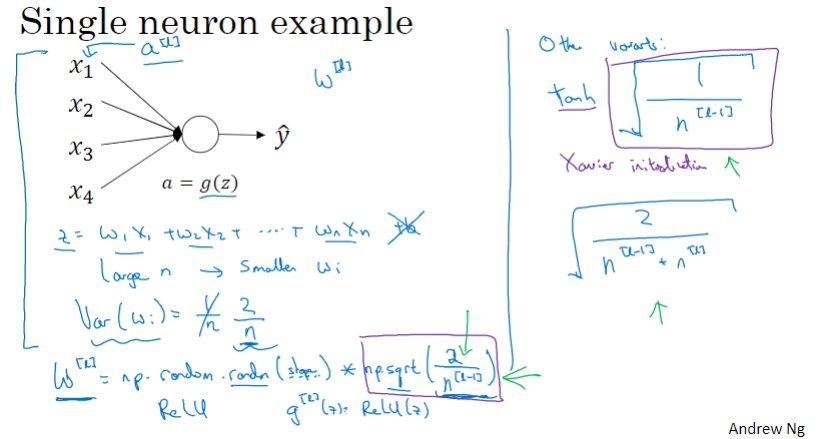 Single neuron example
a^[l]
x₁
x₂
x₃
x₄
w^[l]
ŷ
a = g(z)
z = w₁x₁ + w₂x₂ + ... + wₙxₙ +b
large n → smaller wᵢ
Var(wᵢ) = 1/n 2/n
W^[l] = np.random.randn(shape) * np.sqrt(2/n^[l-1])
ReLU g^[l](z) = ReLU(z)
Other variants:
tanh √(1/n^[l-1])
Xavier initialization ↑
√(2/(n^[l-1] + n^[l]))
↑
Andrew Ng